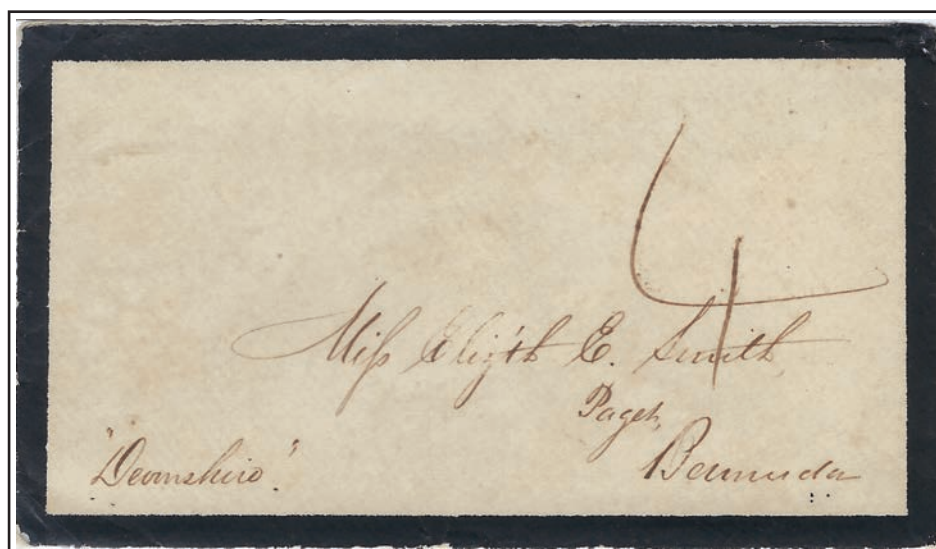 4
Miss Elizth E. Smith
Paget,
Bermuda
"Devonshire".